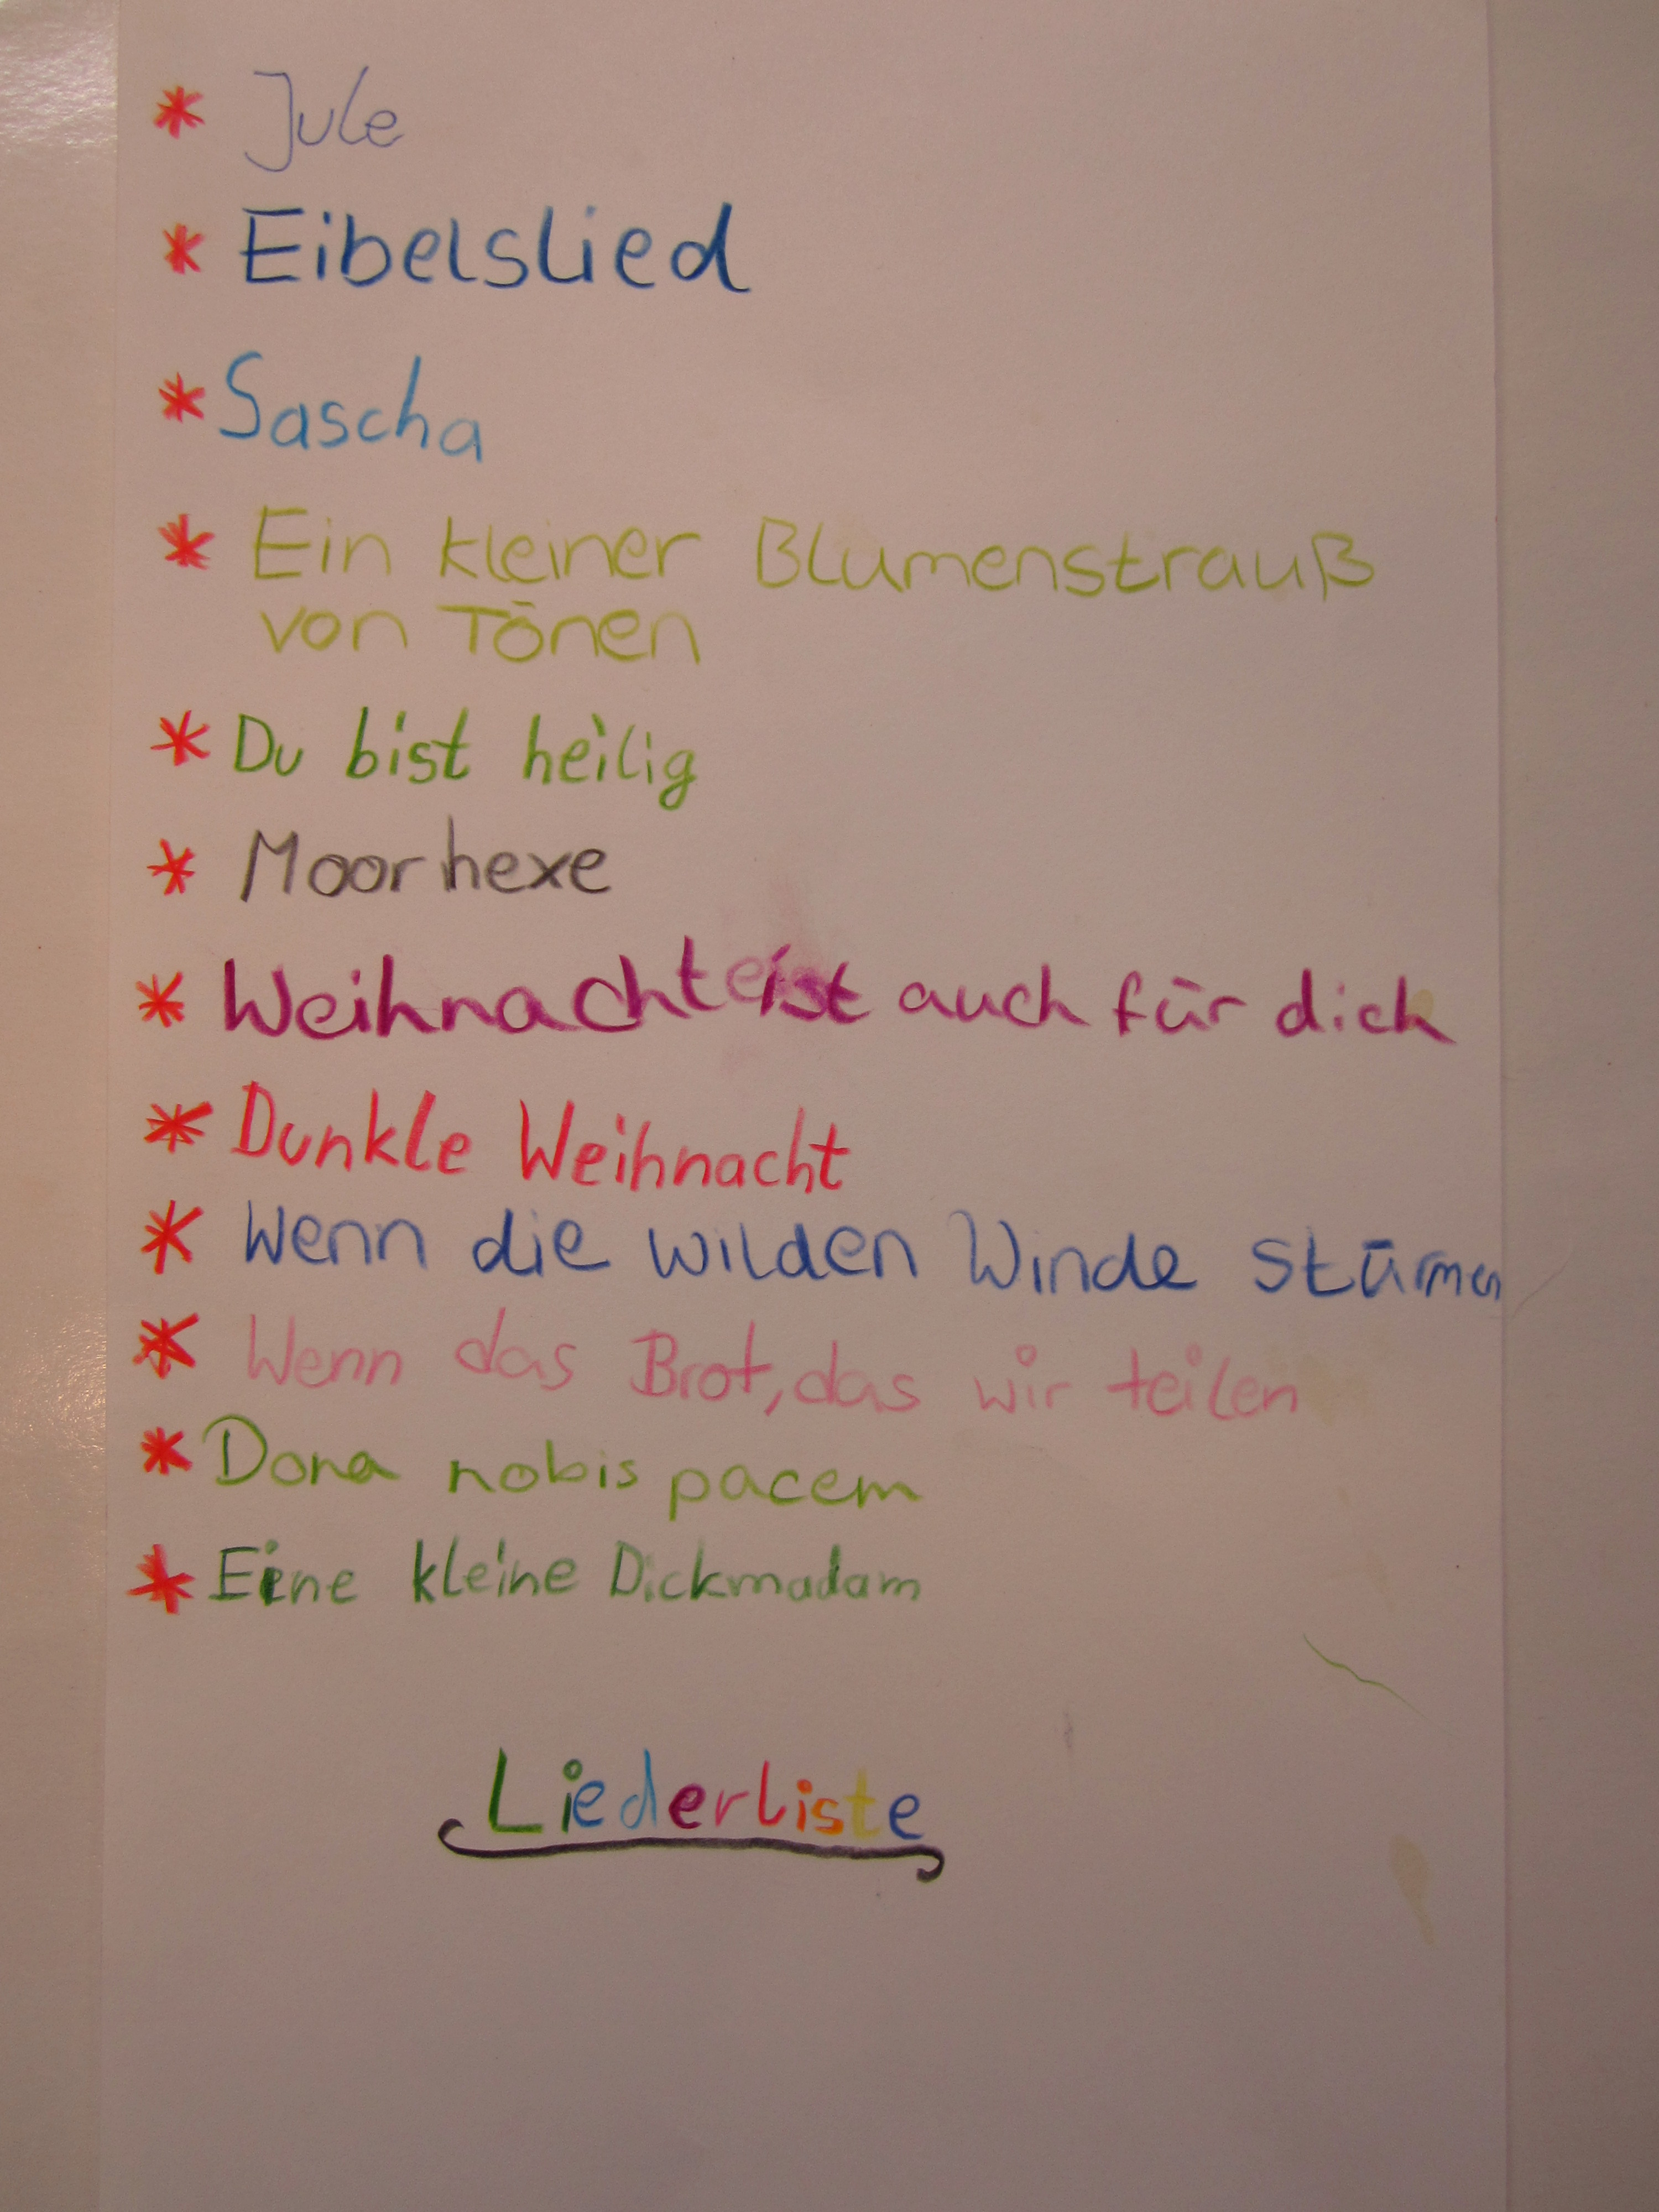 * Jule
* Eibelslied
* Sascha
* Ein kleiner Blumenstrauß
von Tönen
* Du bist heilig
* Moorhexe
* Weihnacht ist auch für dich
* Dunkle Weihnacht
* Wenn die wilden Winde stürmen
* Wenn das Brot, das wir teilen
* Dona nobis pacem
* Eine kleine Dickmadam
Liederliste